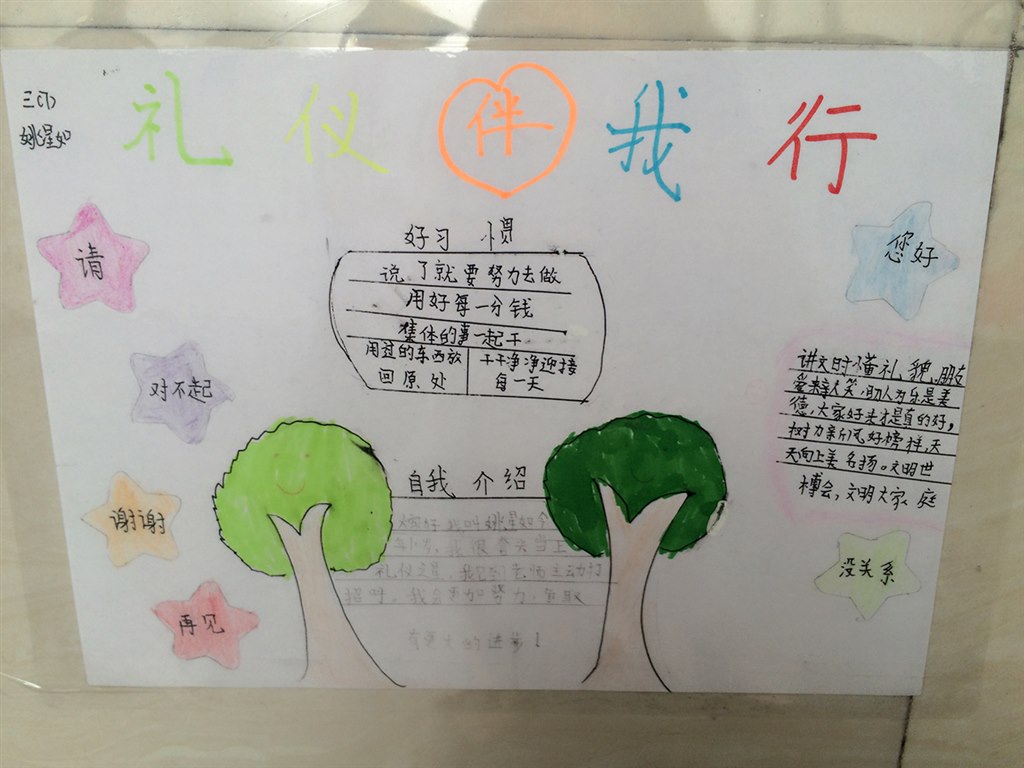 三(7)
姚星如
礼仪伴我行
请
对不起
谢谢
再见
好习惯
说了就要努力去做
用好每一分钱
集体的事一起干
用过的东西放
回原处
干干净净迎接
每一天
自我介绍
大家好我叫姚星如今
年 岁,我很 当上
礼仪之星,我见到老师主动打
招呼。我会更加努力,争取
有更大的进步!
您好
讲文明懂礼貌,朋友
爱来亲人笑,助人为乐是美
德,大家好来才是真的好,
树力新风好榜样,天
天向上美名扬。文明世
博会,文明大家庭
没关系